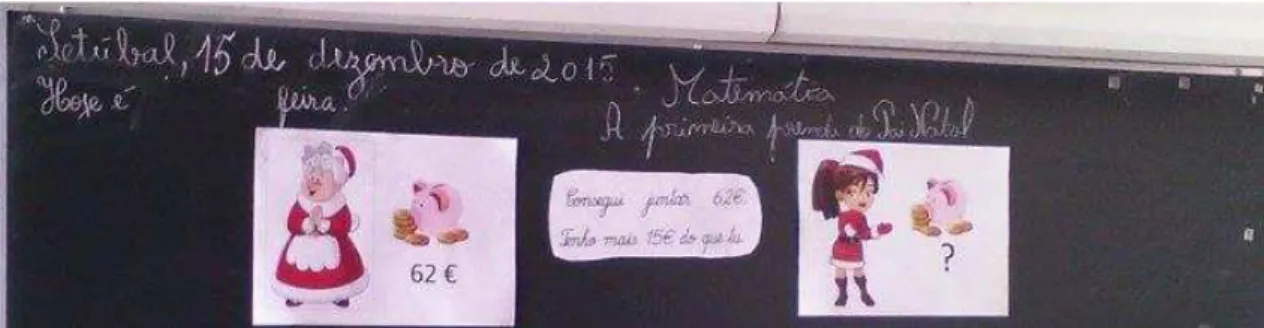 Setúbal, 15 de dezembro de 2015.
Hoje é feira.
Matemática
A primeira prenda do Pai Natal
62 €
Consegui juntar 62€.
Tenho mais 15€ do que tu.
?